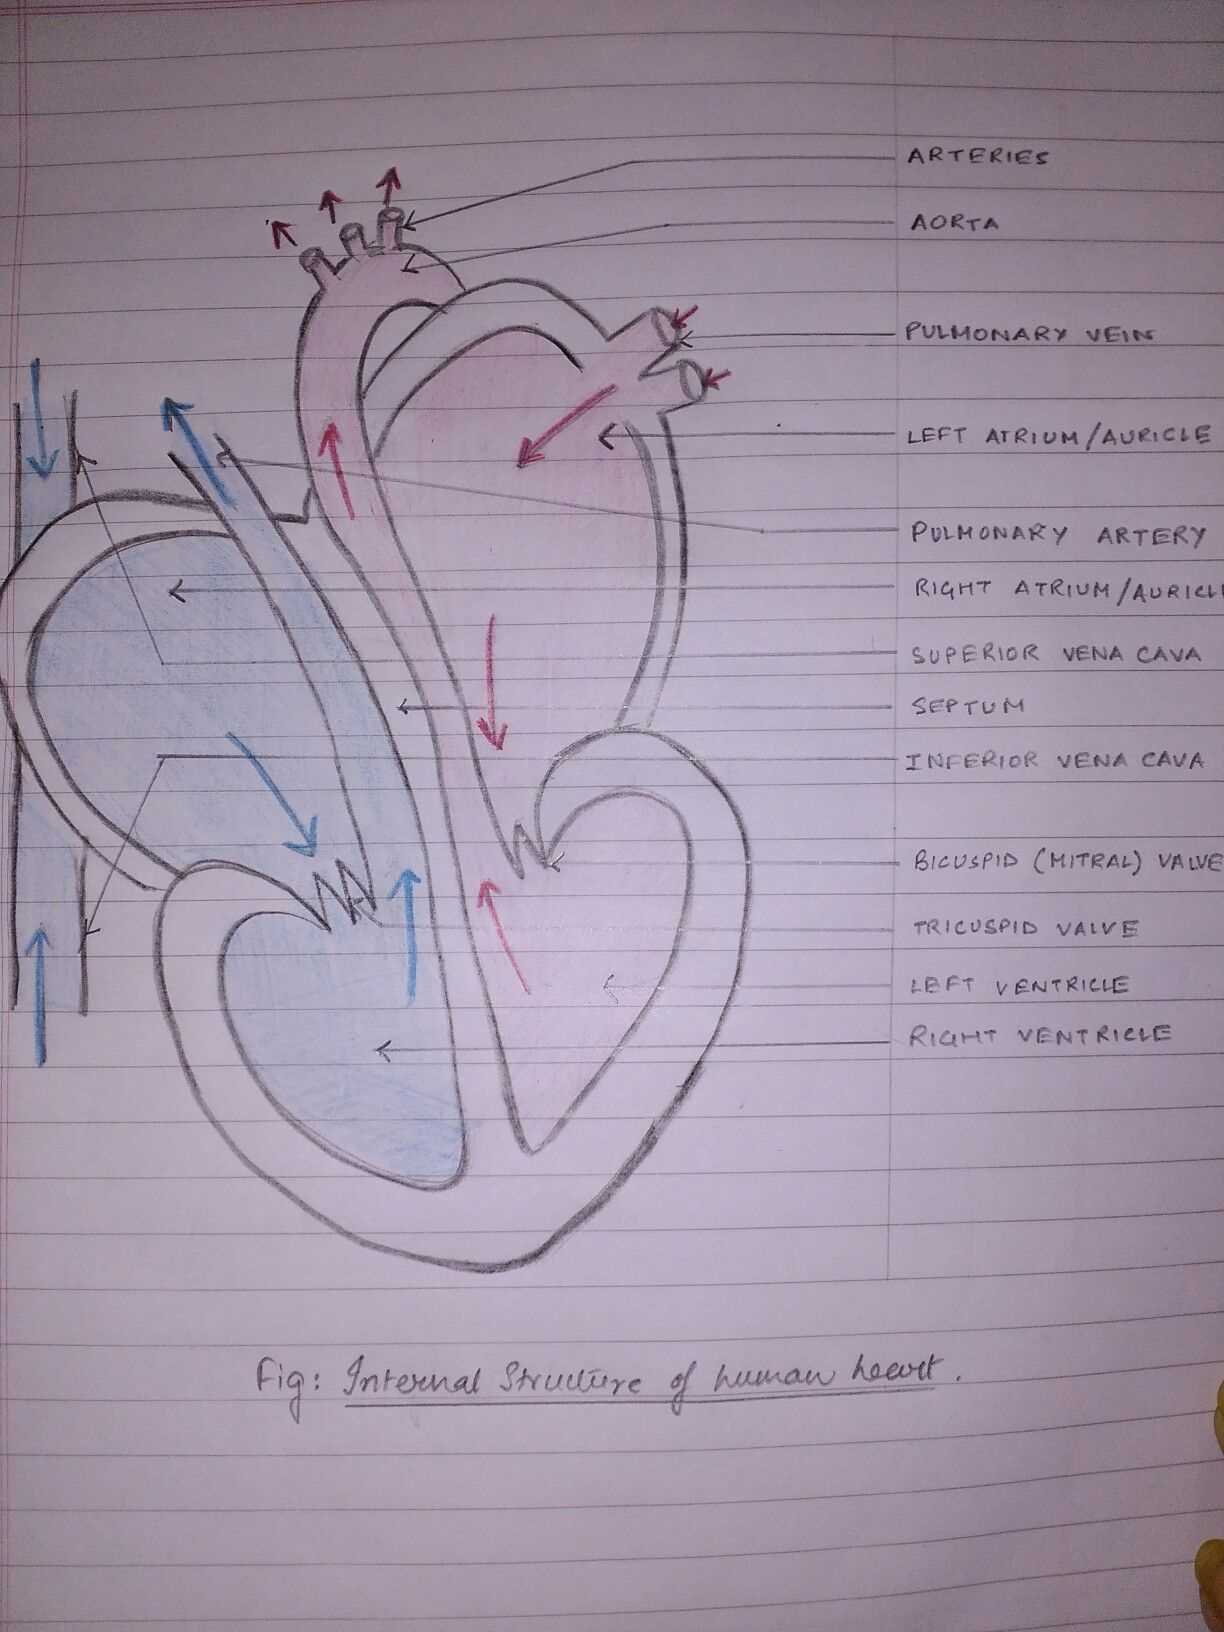 ARTERIES
AORTA
PULMONARY VEIN
LEFT ATRIUM/AURICLE
PULMONARY ARTERY
RIGHT ATRIUM/AURICLE
SUPERIOR VENA CAVA
SEPTUM
INFERIOR VENA CAVA
BICUSPID (MITRAL) VALVE
TRICUSPID VALVE
LEFT VENTRICLE
RIGHT VENTRICLE
Fig: Internal Structure of human heart.